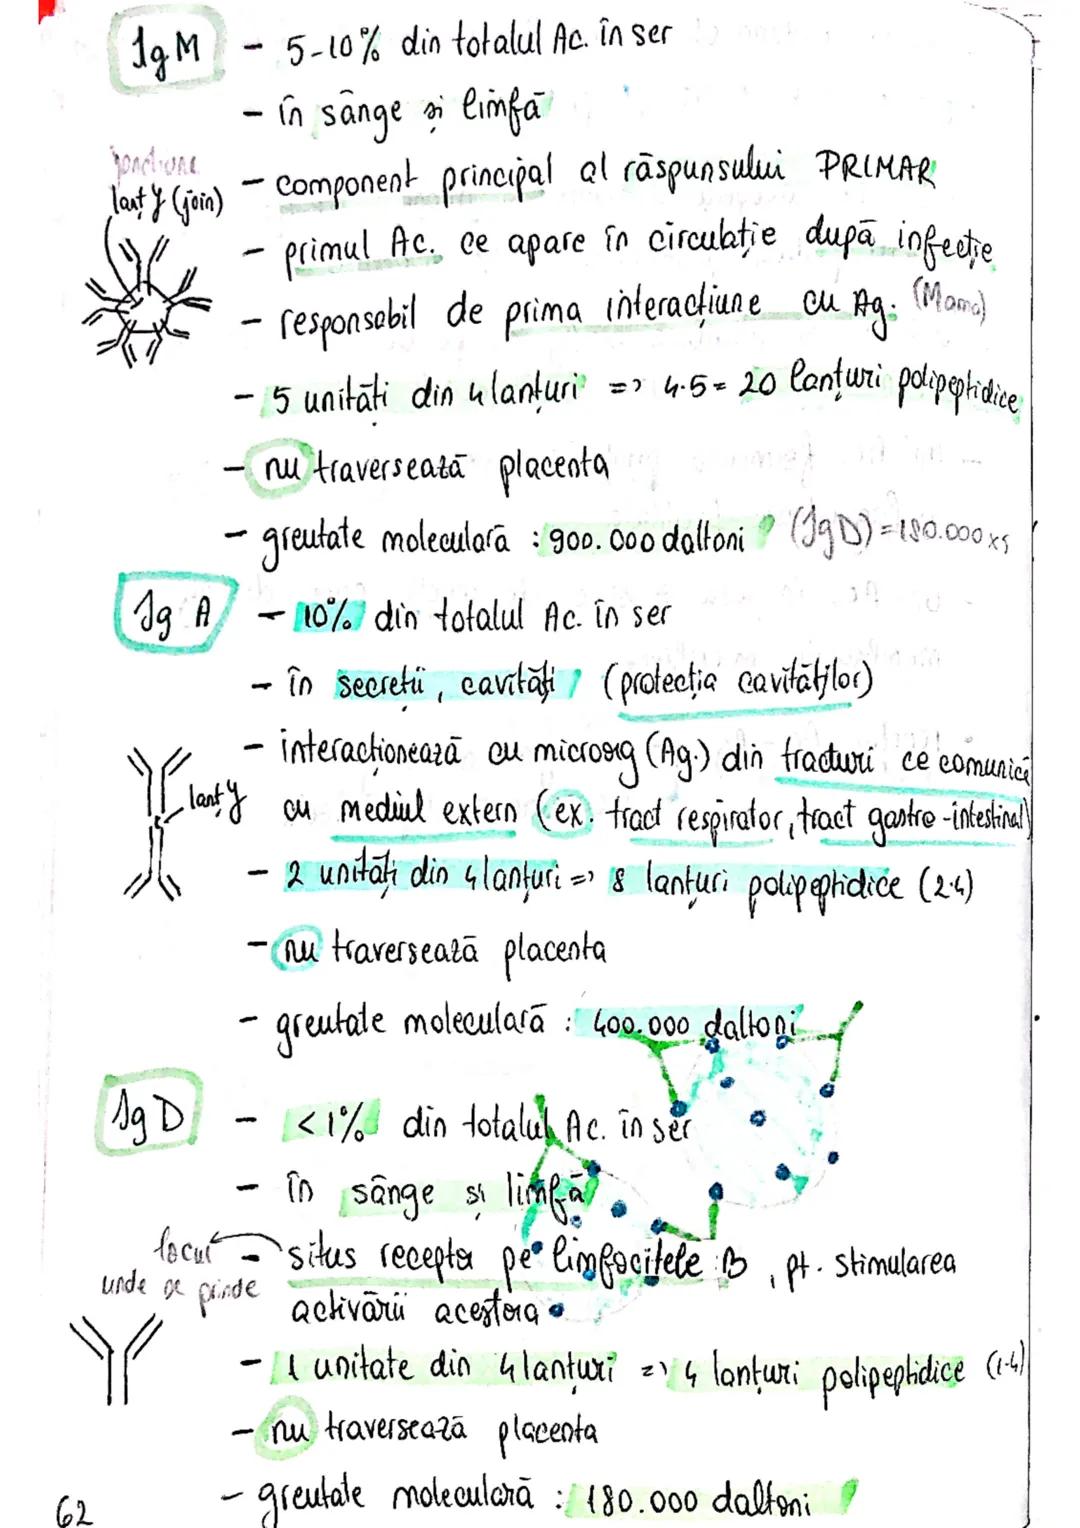 IgM - 5-10% din totalul Ac. în ser
- în sânge și limfă
joncțiune
lanț y (join)
- component principal al răspunsului PRIMAR
- primul Ac. ce apare în circulație după infecție
- responsabil de prima interacțiune cu Ag. (Mama)
- 5 unități din 4 lanțuri => 4·5 = 20 lanțuri polipeptidice
- nu traversează placenta
- greutate moleculară : 900.000 daltoni (IgD) = 180.000 x5
Ig A - 10% din totalul Ac. în ser
- în secreții, cavități (protecția cavităților)
- interacționează cu microorg (Ag.) din tracturi ce comunică
lanț y
cu mediul extern (ex. tract respirator, tract gastro-intestinal)
- 2 unități din 4 lanțuri => 8 lanțuri polipeptidice (2·4)
- nu traversează placenta
- greutate moleculară : 400.000 daltoni
IgD - <1% din totalul Ac. în ser
- în sânge și limfă
locul unde se prinde
- situs receptor pe limfocitele B, pt. stimularea
activării acestora
- 1 unitate din 4 lanțuri => 4 lanțuri polipeptidice (1·4)
- nu traversează placenta
- greutate moleculară : 180.000 daltoni
62